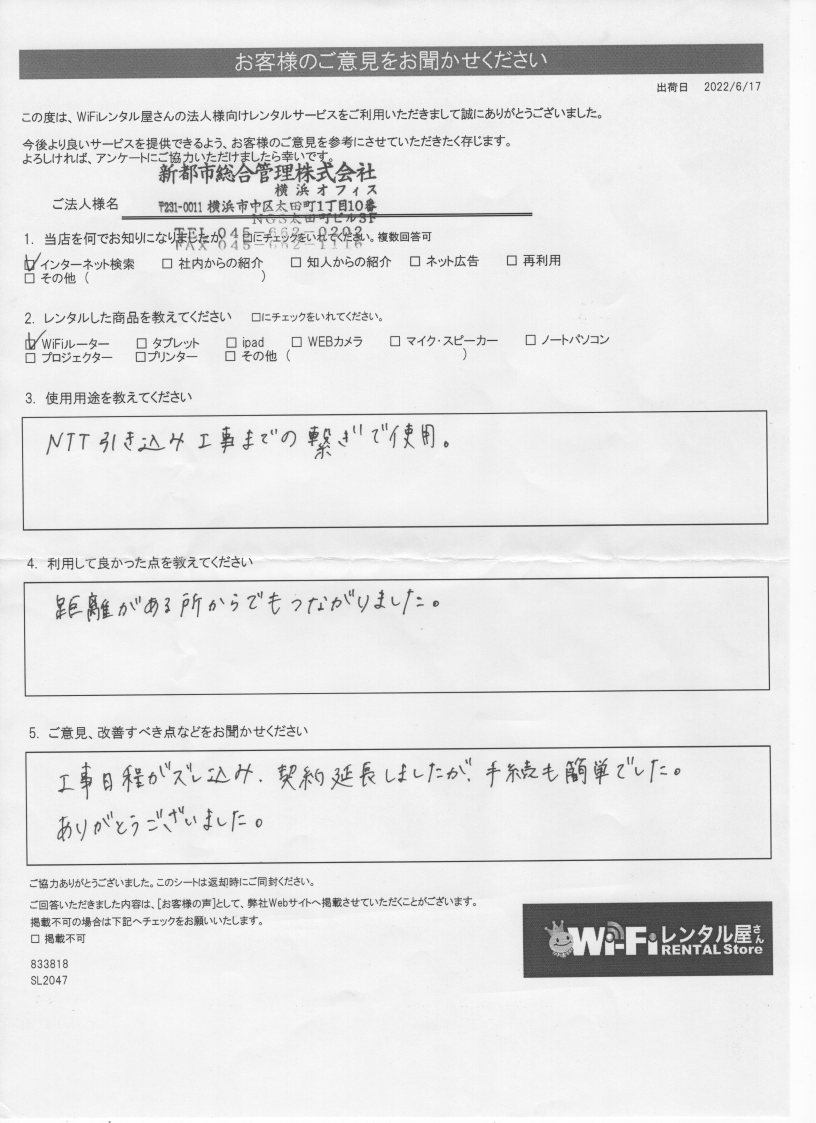 お客様のご意見をお聞かせください
出荷日 2022/6/17
この度は、WiFiレンタル屋さんの法人様向けレンタルサービスをご利用いただきまして誠にありがとうございました。
今後より良いサービスを提供できるよう、お客様のご意見を参考にさせていただきたく存じます。
よろしければ、アンケートにご協力いただけましたら幸いです。
新都市総合管理株式会社
横浜オフィス
ご法人様名 〒231-0011 横浜市中区太田町1丁目10番
NGS太田町ビル3F
TEL 045-662-0202
1. 当店を何でお知りになりましたか □にチェックをいれてください。複数回答可
FAX 045-662-1116
☑ インターネット検索 □ 社内からの紹介 □ 知人からの紹介 □ ネット広告 □ 再利用
□ その他 ( )
2. レンタルした商品を教えてください □にチェックをいれてください。
☑ WiFiルーター □ タブレット □ ipad □ WEBカメラ □ マイク・スピーカー □ ノートパソコン
□ プロジェクター □プリンター □ その他 ( )
3. 使用用途を教えてください
NTT引き込み工事までの繋ぎで使用。
4. 利用して良かった点を教えてください
距離がある所からでもつながりました。
5. ご意見、改善すべき点などをお聞かせください
工事日程がズレ込み、契約延長しましたが、手続も簡単でした。
ありがとうございました。
ご協力ありがとうございました。このシートは返却時にご同封ください。
ご回答いただきました内容は、[お客様の声]として、弊社Webサイトへ掲載させていただくことがございます。
掲載不可の場合は下記へチェックをお願いいたします。
□ 掲載不可
833818
SL2047
Wi-Fiレンタル屋さん
RENTAL Store